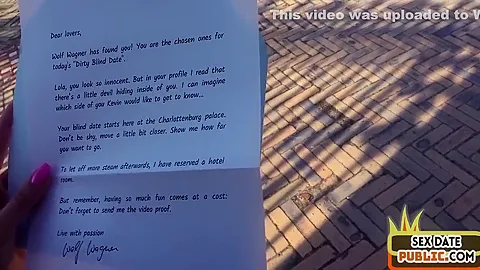 This video was uploaded to
Dear lovers,
Wolf Wagner has found you! You are the chosen ones for
today's "Dirty Blind Date".
Lola, you look so innocent. But in your profile I read that
there's a little devil hiding inside of you. I can imagine
which side of you Kevin would like to get to know...
Your blind date starts here at the Charlottenburg palace.
Don't be shy, move a little bit closer. Show me how far
you want to go.
To let off more steam afterwards, I have reserved a hotel
room.
But remember, having so much fun comes at a cost:
Don't forget to send me the video proof.
Live with passion
Wolf Wagner
SEX DATE
PUBLIC.COM